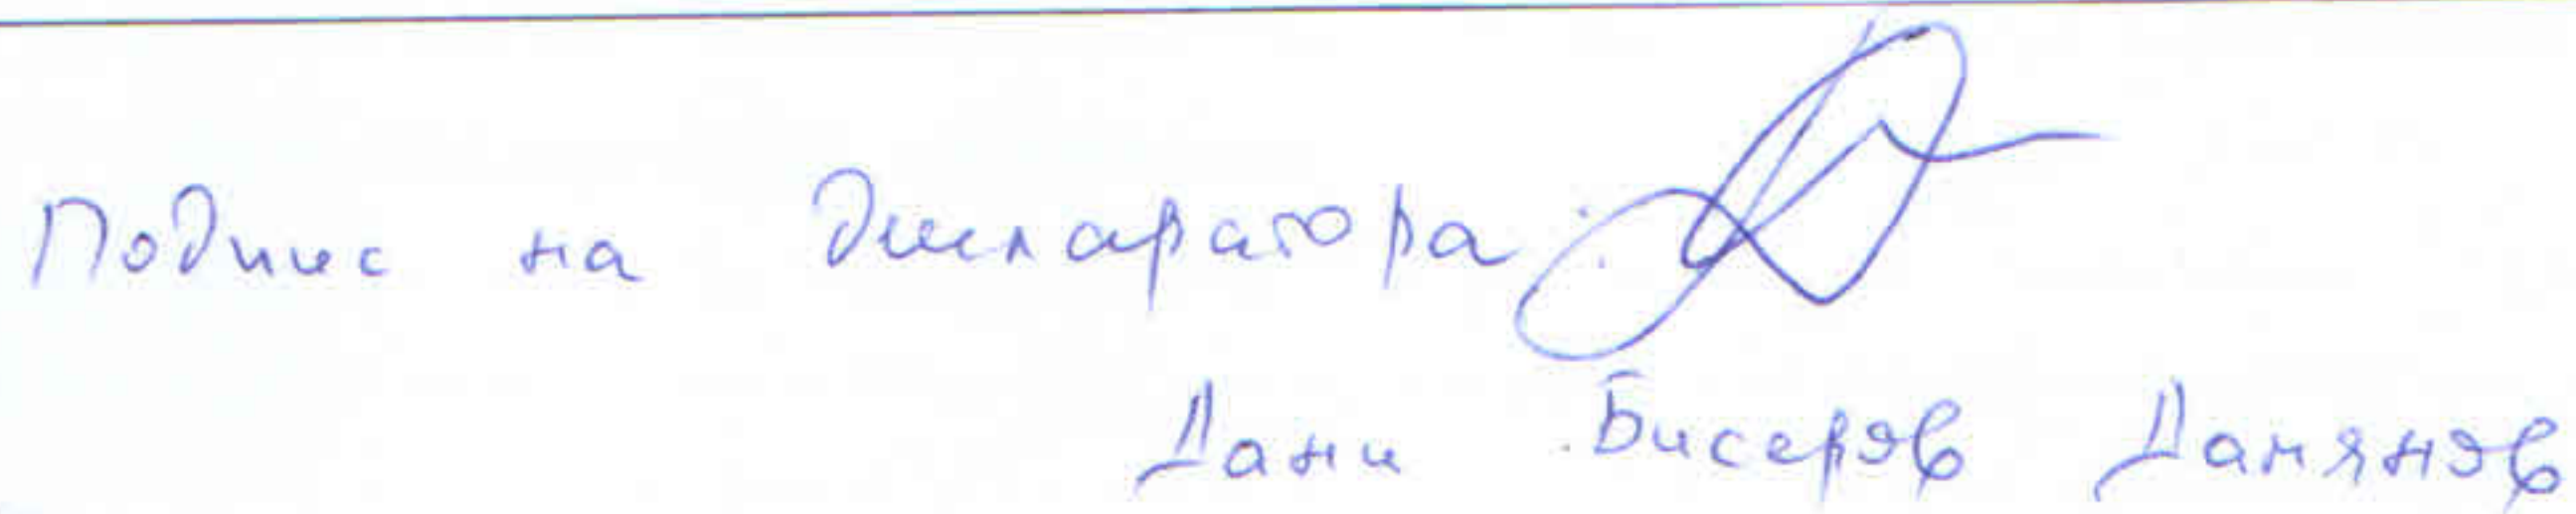 Подпис на декларатора:
Дани Бисеров Дамянов